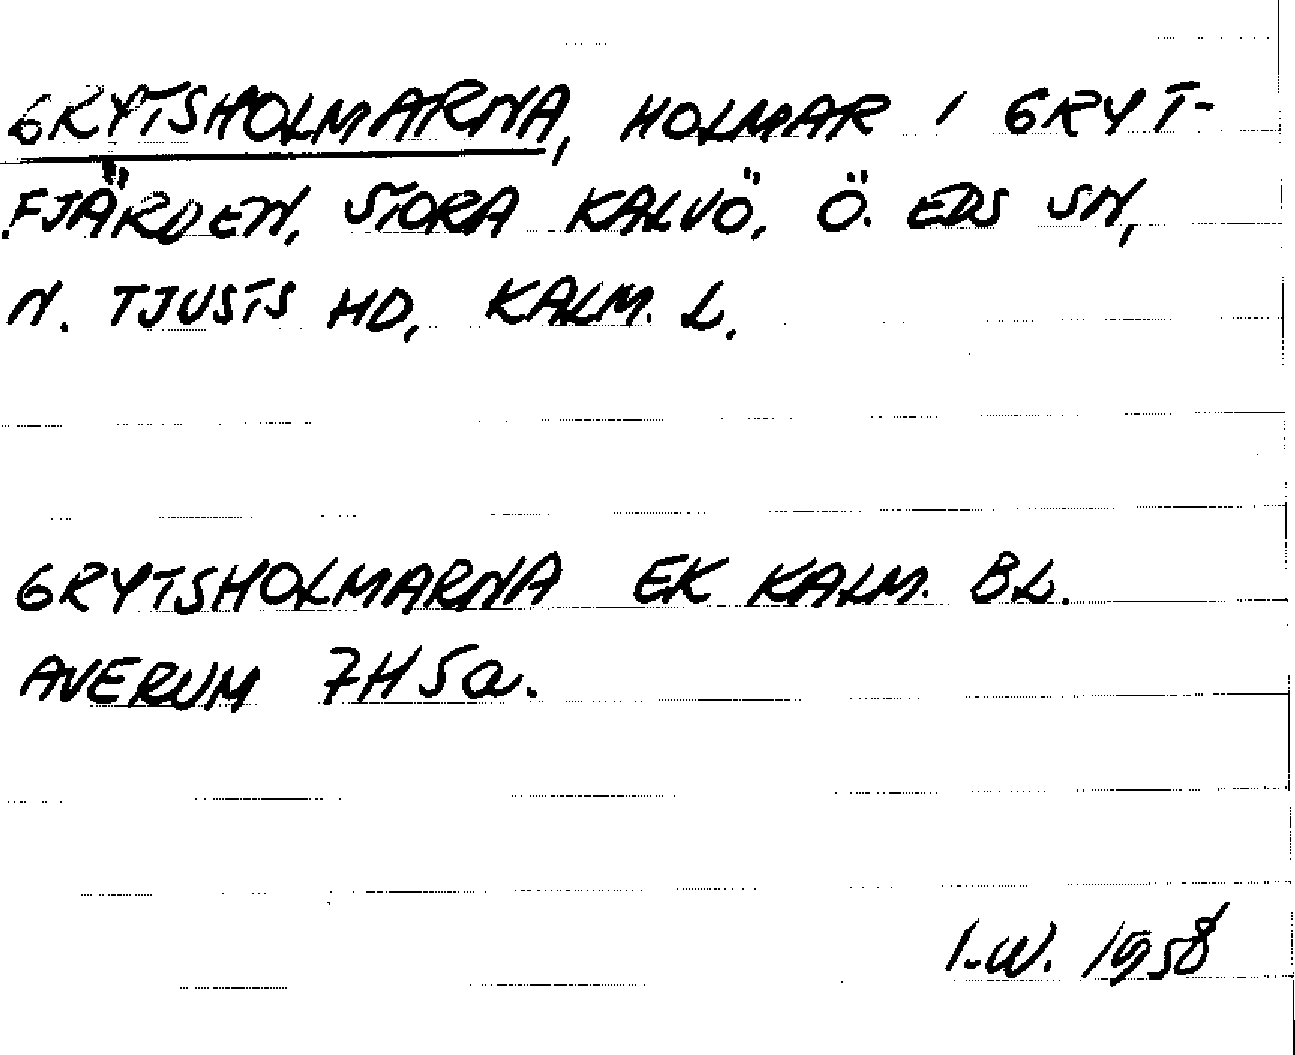 GRYTSHOLMARNA, HOLMAR I GRYT-
FJÄRDEN, STORA KALVÖ, Ö. EDS SN,
N. TJUSTS HD, KALM. L.
GRYTSHOLMARNA EK KALM. BL.
AVERUM 7H5a.
I-W. 1958